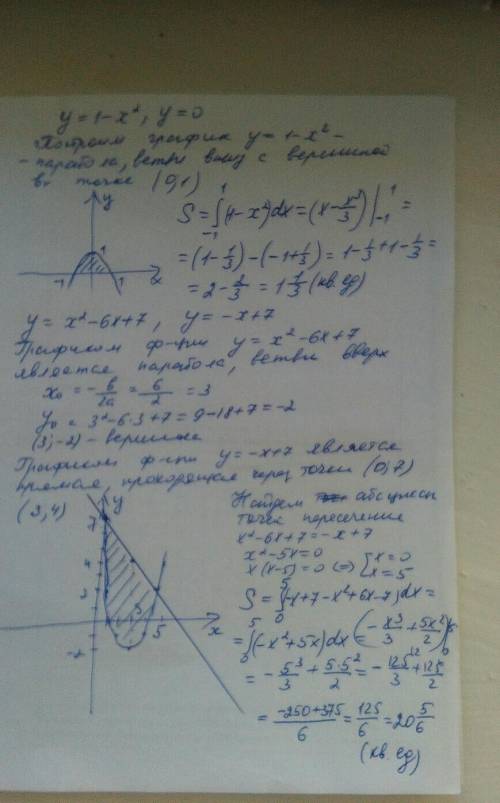 y = 1 - x², y = 0
Построим график y = 1 - x² -
- парабола, ветви вниз с вершиной
в точке (0,1)
y
1
-1
1
x
S = ∫₋₁¹ (1 - x²)dx = (x - x³/3) |₋₁¹ =
= (1 - 1/3) - (-1 + 1/3) = 1 - 1/3 + 1 - 1/3 =
= 2 - 2/3 = 1 1/3 (кв. ед)
y = x² - 6x + 7, y = -x + 7
Графиком ф-ции y = x² - 6x + 7
является парабола, ветви вверх
x₀ = -b/2a = 6/2 = 3
y₀ = 3² - 6·3 + 7 = 9 - 18 + 7 = -2
(3; -2) - вершина
Графиком ф-ции y = -x + 7 является
прямая, проходящая через точки (0,7)
(3,4)
y
7
4
3
5
x
-2
Найдем абсциссы
точек пересечения
x² - 6x + 7 = -x + 7
x² - 5x = 0
x(x - 5) = 0 ⇔ [x = 0
x = 5
S = ∫₀⁵ (-x + 7 - x² + 6x - 7)dx =
= ∫₀⁵ (-x² + 5x)dx = (-x³/3 + 5x²/2) |₀⁵
= -5³/3 + 5·5²/2 = -125/3 + 125/2
= (-250 + 375)/6 = 125/6 = 20 5/6
(кв. ед)